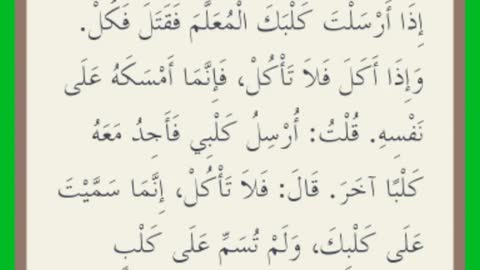 إِذَا أَرْسَلْتَ كَلْبَكَ الْمُعَلَّمَ فَقَتَلَ فَكُلْ.
وَإِذَا أَكَلَ فَلاَ تَأْكُلْ، فَإِنَّمَا أَمْسَكَهُ عَلَى
نَفْسِهِ. قُلْتُ: أُرْسِلُ كَلْبِي فَأَجِدُ مَعَهُ
كَلْبًا آخَرَ. قَالَ: فَلاَ تَأْكُلْ، إِنَّمَا سَمَّيْتَ
عَلَى كَلْبِكَ، وَلَمْ تُسَمِّ عَلَى كَلْبٍ